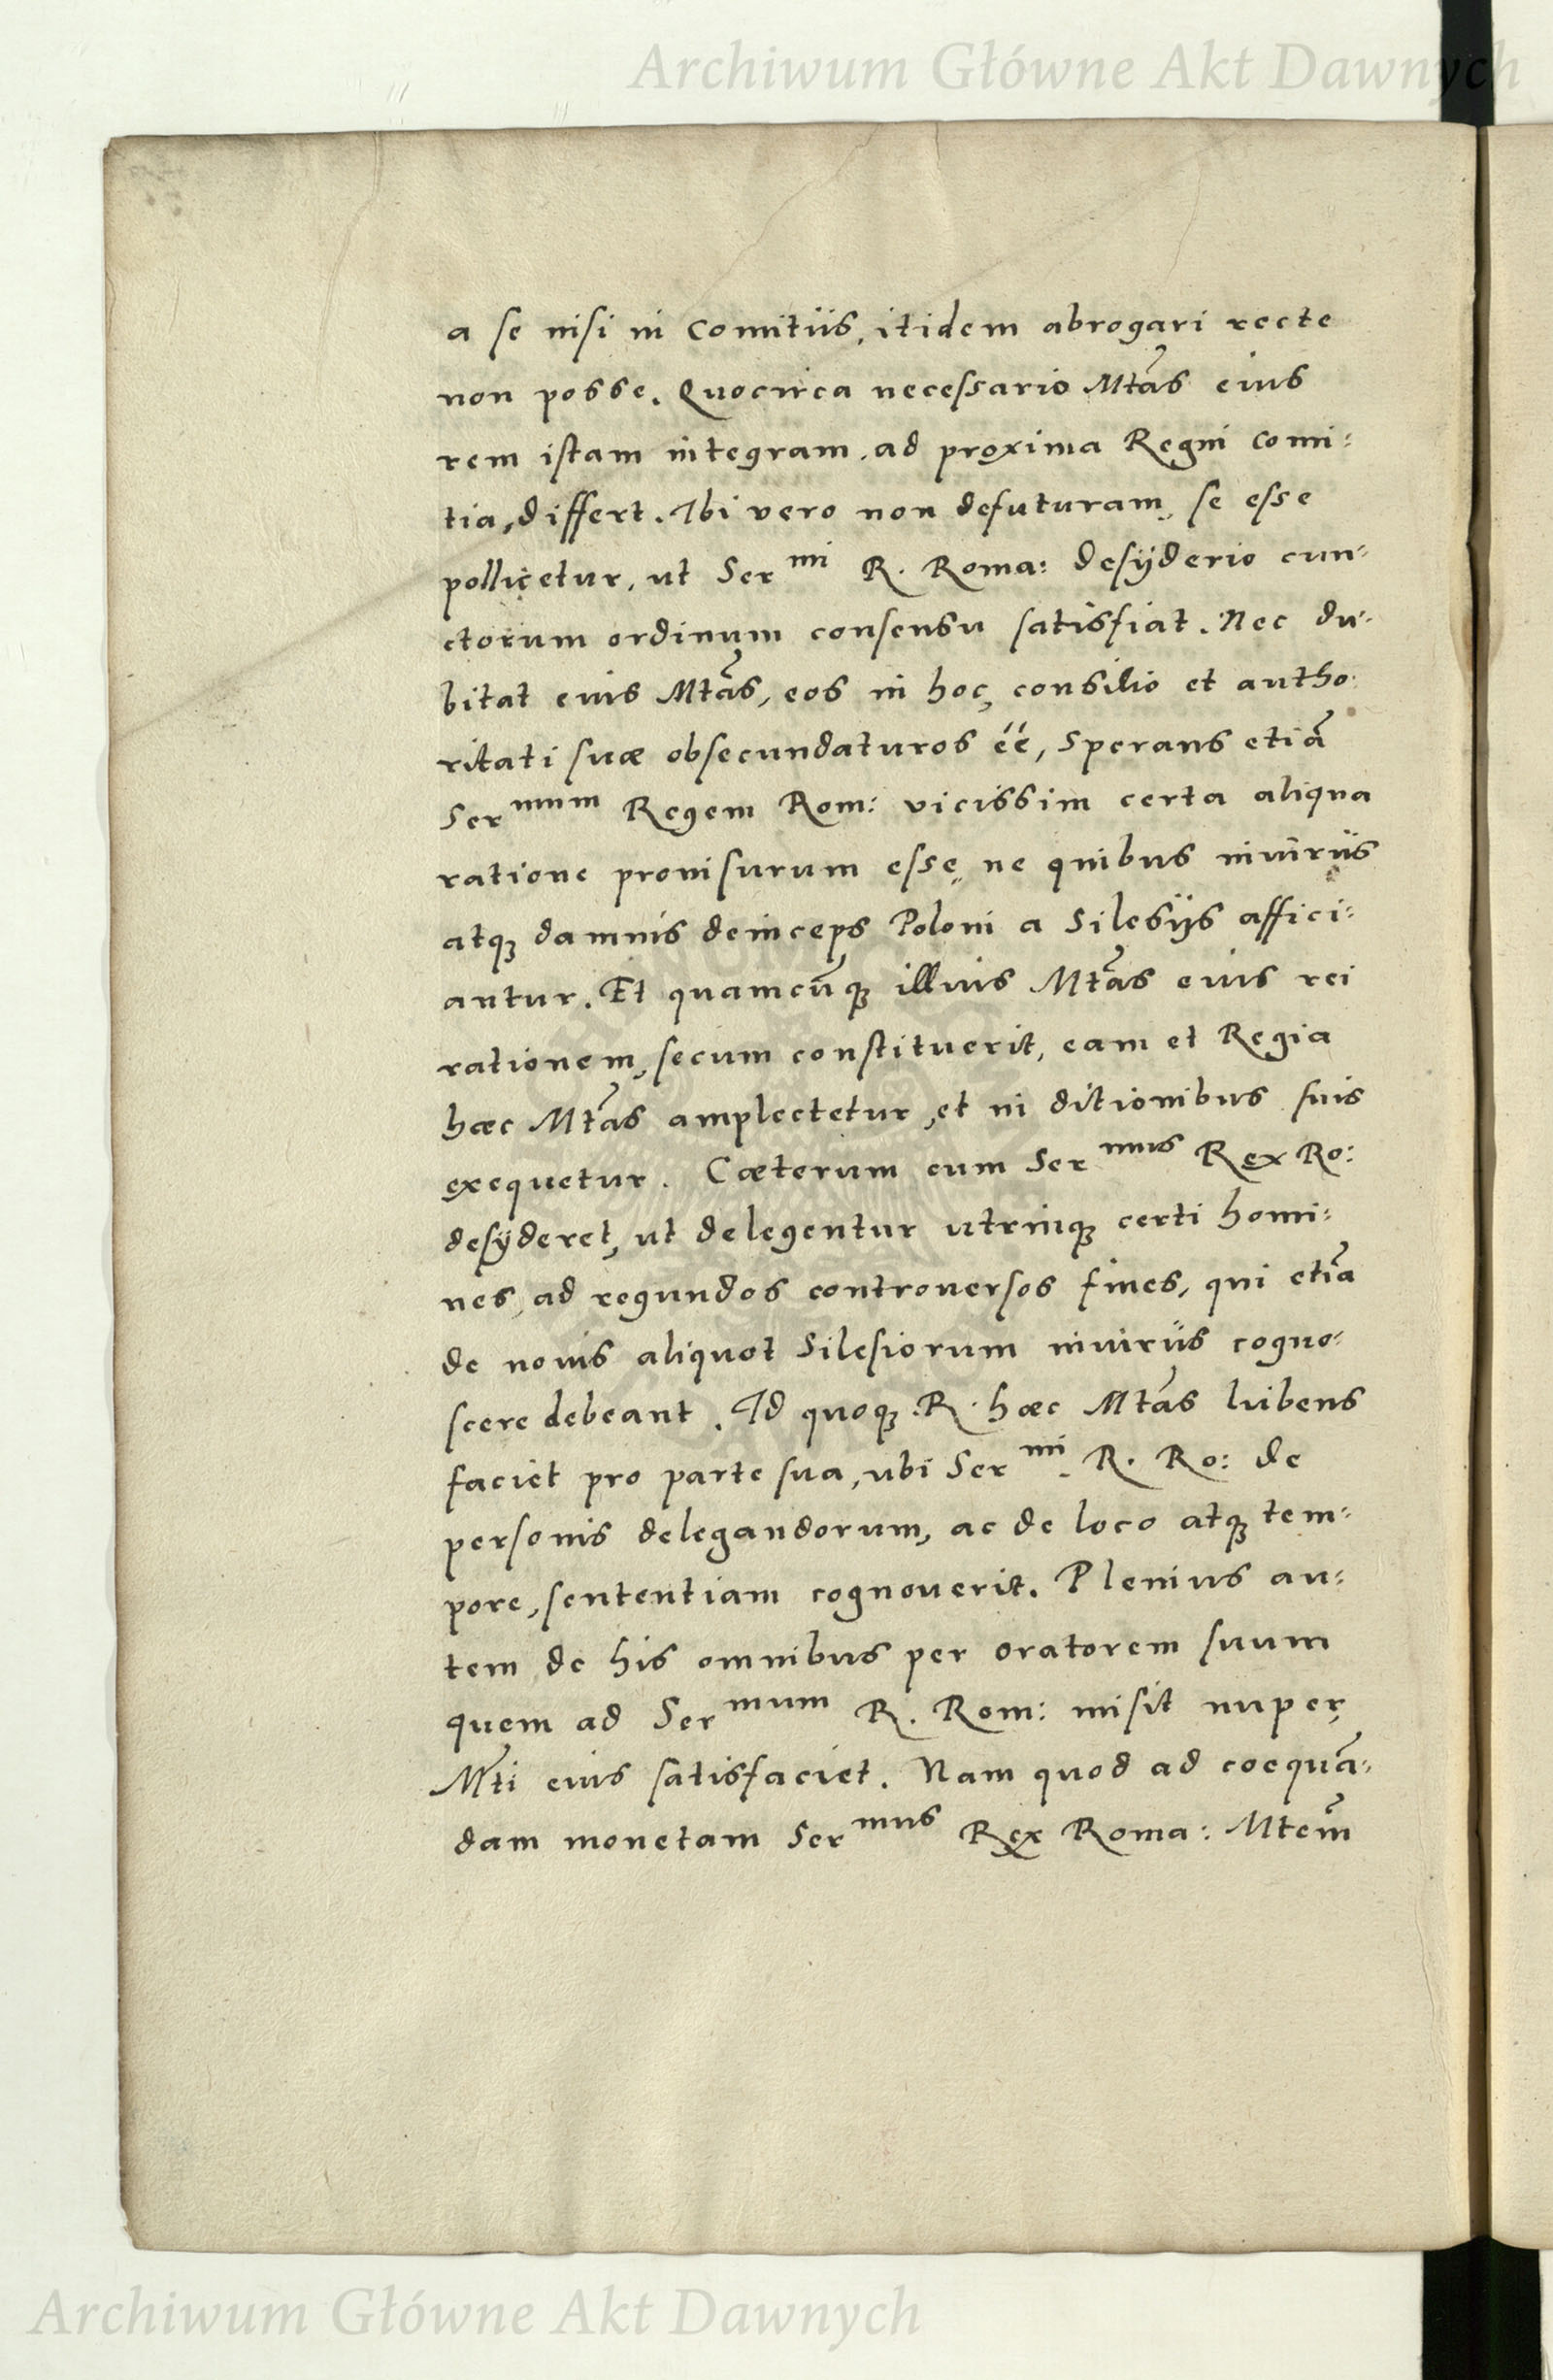 Archiwum Główne Akt Dawnych
a se nisi in Comitiis, itidem abrogari recte
non posse. Quocirca necessario Mtas eius
rem istam integram, ad proxima Regni Comi:
tia, differt. Ibi vero non defuturam, se esse
pollicetur, ut Ser mi R. Roma: desyderio cun:
ctorum ordinum consensu satisfiat. Nec du:
bitat eius Mtas, eos in hoc, consilio et autho:
ritati suæ obsecundaturos éé, Sperans etiã
Ser mum Regem Rom: vicissim certa aliqua
ratione prouisurum esse, ne quibus iniuriis
atq; damnis deinceps Poloni a Silesijs affici:
antur. Et quamcũq; illius Mtas eius rei
rationem, secum constituerit, eam et Regia
hæc Mtas amplectetur, et in ditionibus suis
exequetur. Cæterum cum Ser mus Rex Ro:
desyderet, ut delegentur utrinq; certi homi:
nes, ad regundos controuersos fines, qui etiã
de nouis aliquot Silesiorum iniuriis cogno:
scere debeant. Id quoq; R. hæc Mtas lubens
faciet pro parte sua, ubi Ser mi R. Ro: de
personis delegandorum, ac de loco atq; tem:
pore, sententiam cognouerit. Plenius au:
tem de his omnibus per oratorem suum
quem ad Ser mum R. Rom: misit nuper,
Mti eius satisfaciet. Nam quod ad coequã:
dam monetam Ser mus Rex Roma: Mtem
Archiwum Główne Akt Dawnych